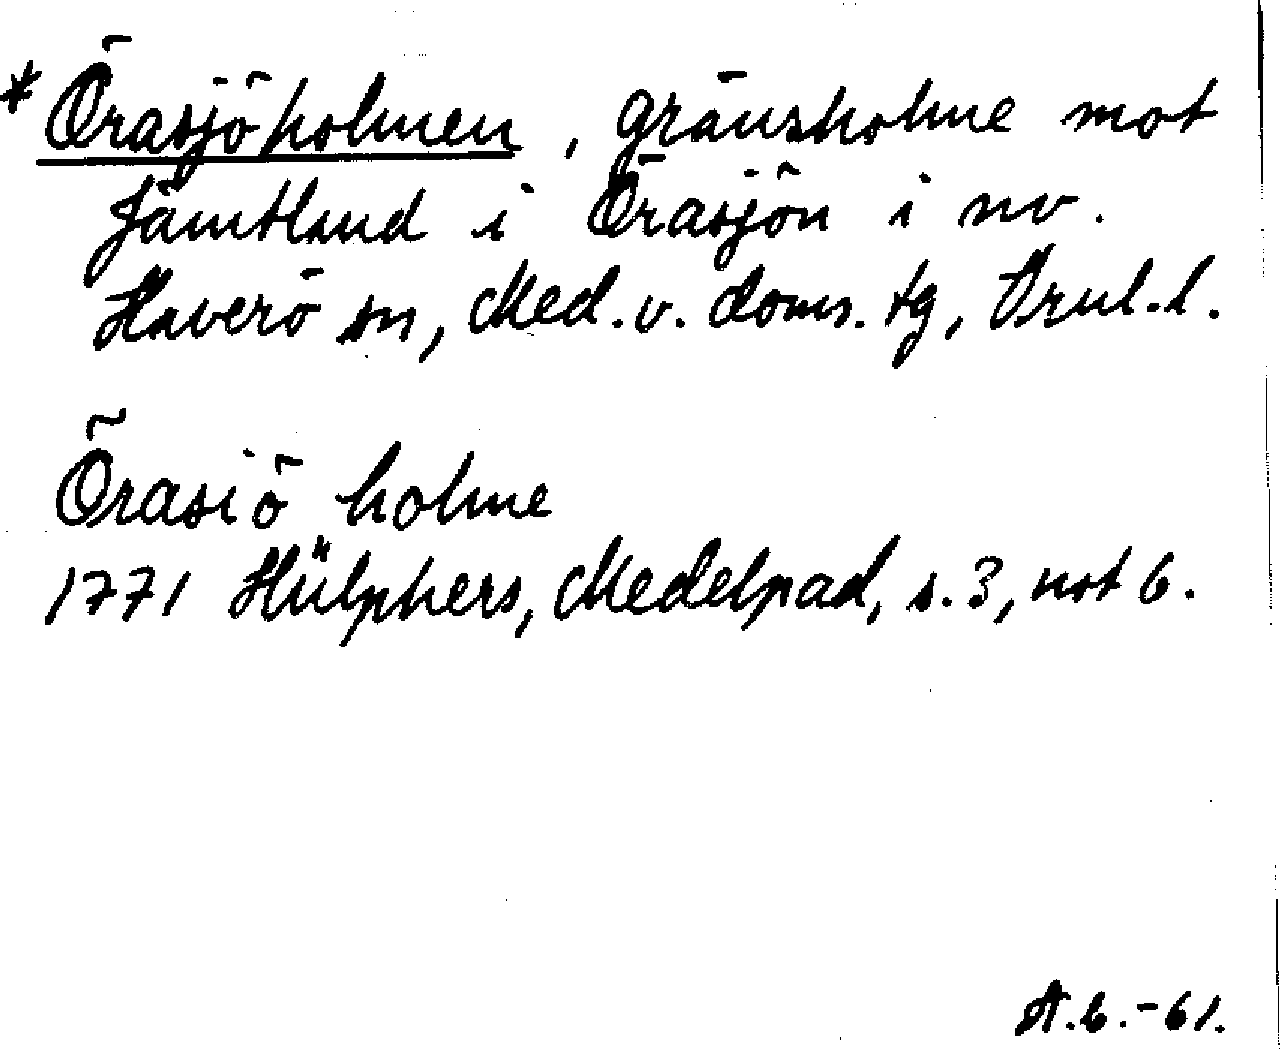 * Örasjöholmen, gränsholme mot
Jämtland i Örasjön i nv.
Haverö sn, Med. v. doms. tg, Vrnl. l.
Örasiö holme
1771 Hülphers, Medelpad, s. 3, not 6.
A.E.-61.